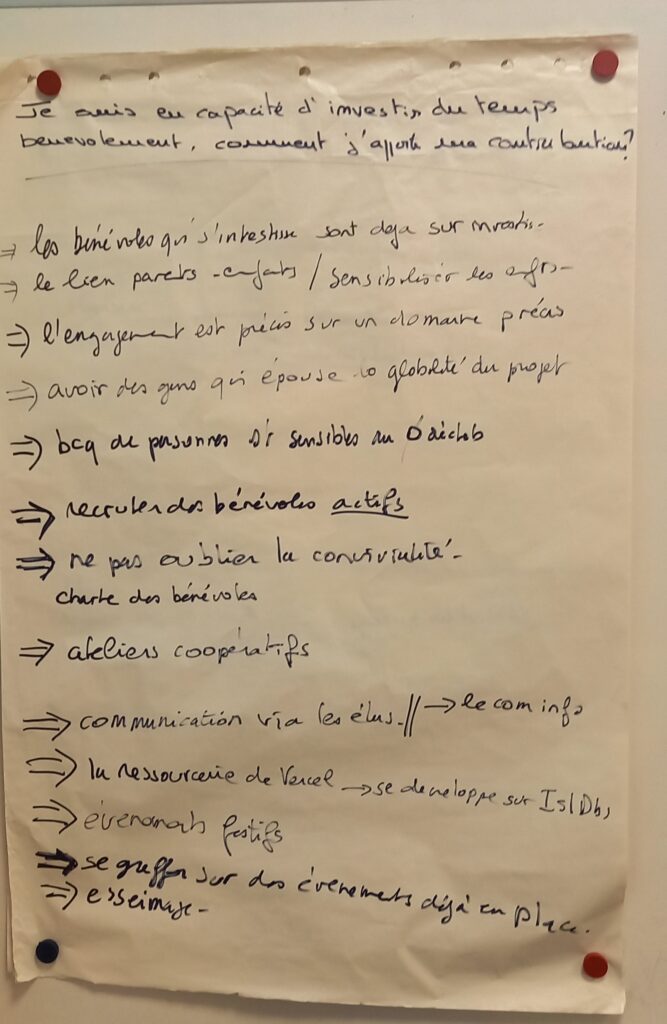 Je suis en capacité d'investir du temps
benevolement, comment j'apporte ma contribution?
⇒ les bénévoles qui s'intestisse sont deja sur investis-
⇒ le lien parents-enfants / sensibiliser les enfts-
⇒ l'engagement est précis sur un domaine précis
⇒ avoir des gens qui épouse la globalité du projet
⇒ bcq de personnes st sensibles au
⇒ recruter des bénévoles actifs
⇒ ne pas oublier la convivialité-
charte des bénévoles
⇒ ateliers coopératifs
⇒ communication via les élus-// → le com info
⇒ la ressourcerie de Vercel → se developpe sur
⇒ évenements festifs
⇒ se greffer sur des évenements déjà en place.
⇒ esseimage-